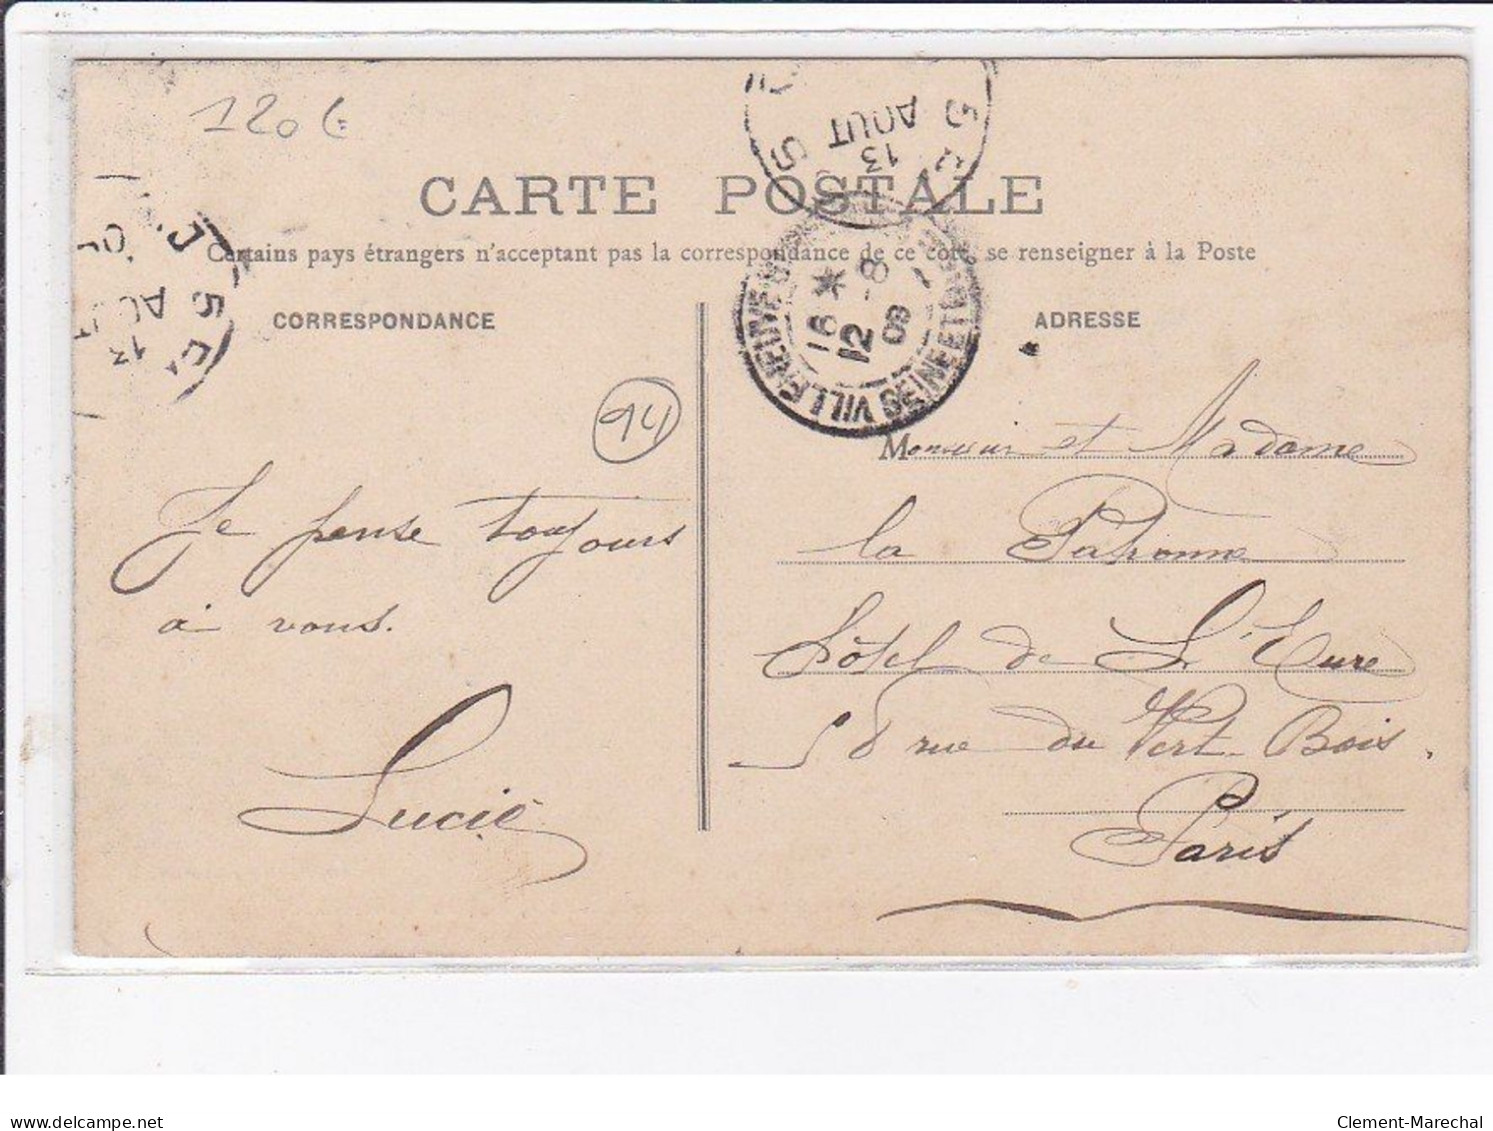 120 €
13
AOUT
CARTE POSTALE
Certains pays étrangers n'acceptant pas la correspondance de ce côté, se renseigner à la Poste
CORRESPONDANCE
ADRESSE
13
AOUT
16 * 12 -8 08
VILLENEUVE SEINE ET
94
Monsieur et Madame
la Patronne
Hôtel de L'Eure
58 rue du Vert-Bois.
Paris
Je pense toujours
à vous.
Lucie
delcampe.net
Clement-Marechal